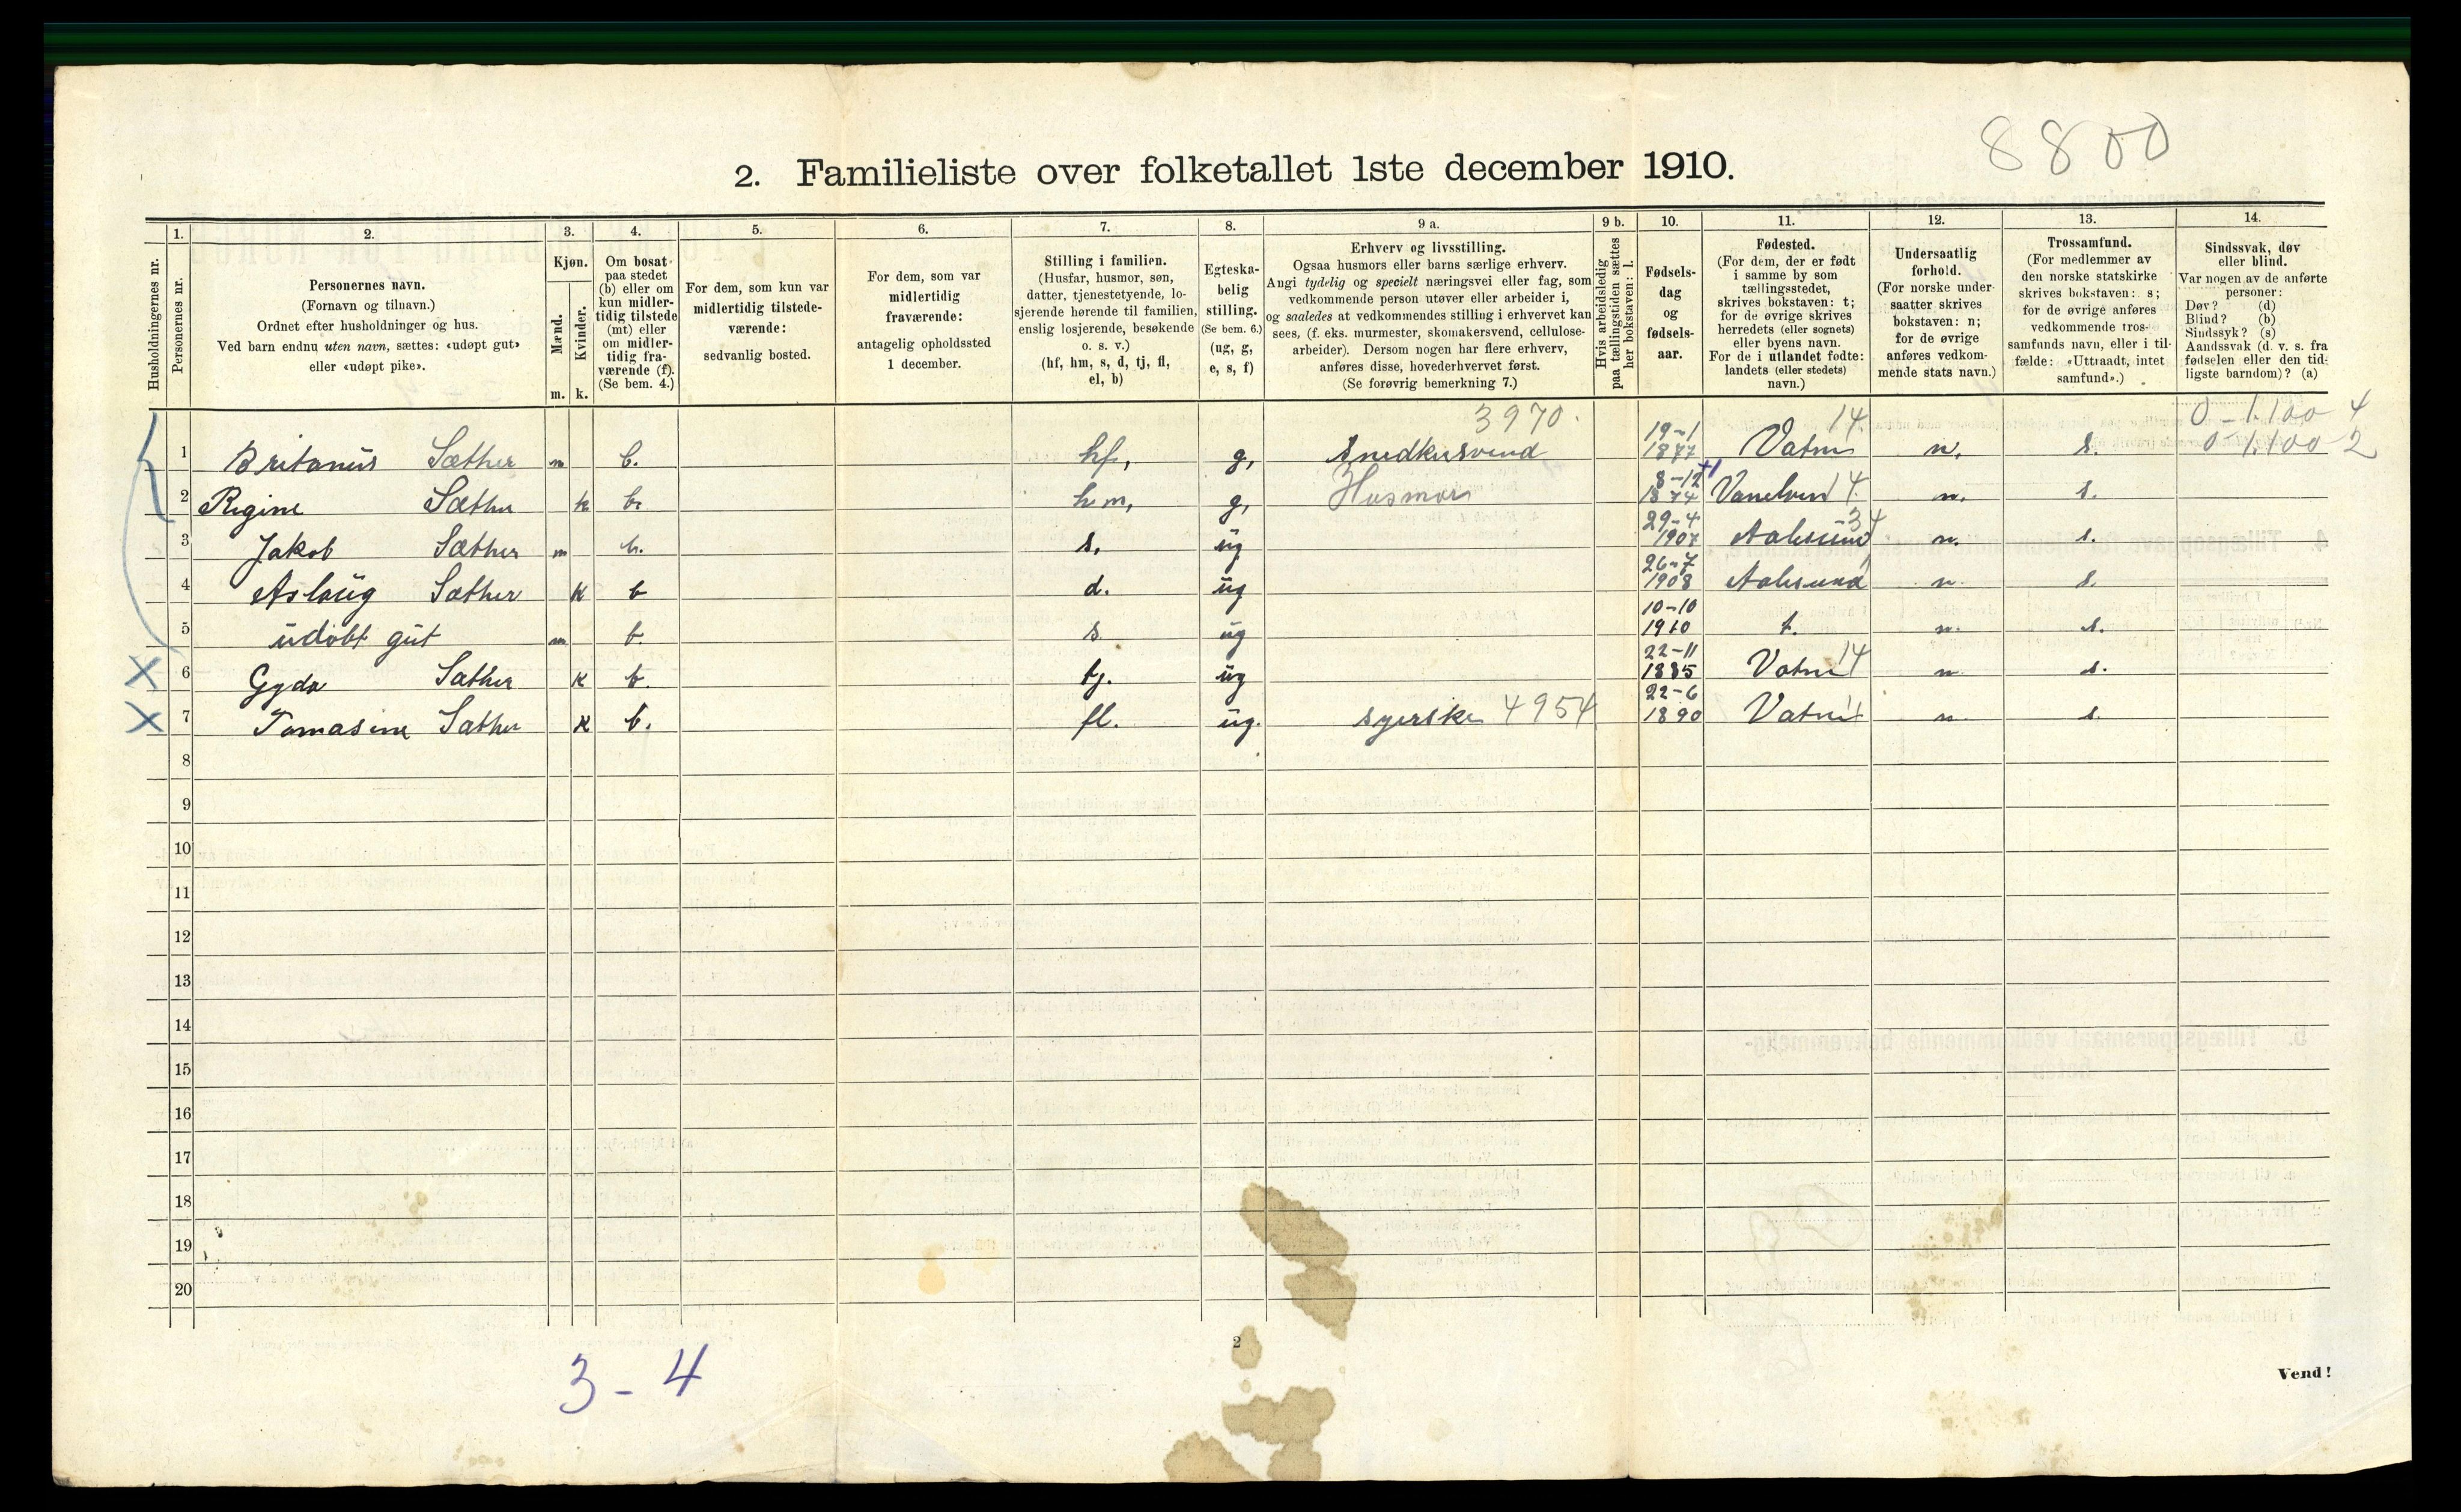 8800
2. Familieliste over folketallet 1ste december 1910.
Husholdningernes nr.
1. Personernes nr.
2. Personernes navn.
(Fornavn og tilnavn.)
Ordnet efter husholdninger og hus.
Ved barn endnu uten navn, sættes: «udøpt gut»
eller «udøpt pike».
3. Kjøn.
Mænd. m.
Kvinder. k.
4. Om bosat
paa stedet
(b) eller om
kun midler-
tidig tilstede
(mt) eller
om midler-
tidig fra-
værende (f).
(Se bem. 4.)
5. For dem, som kun var
midlertidig tilstede-
værende:
sedvanlig bosted.
6. For dem, som var
midlertidig
fraværende:
antagelig opholdssted
1 december.
7. Stilling i familien.
(Husfar, husmor, søn,
datter, tjenestetyende, lo-
sjerende hørende til familien,
enslig losjerende, besøkende
o. s. v.)
(hf, hm, s, d, tj, fl,
el, b)
8. Egteska-
belig
stilling.
(Se bem. 6.)
(ug, g,
e, s, f)
9 a. Erhverv og livsstilling.
Ogsaa husmors eller barns særlige erhverv.
Angi tydelig og specielt næringsvei eller fag, som
vedkommende person utøver eller arbeider i,
og saaledes at vedkommendes stilling i erhvervet kan
sees, (f. eks. murmester, skomakersvend, cellulose-
arbeider). Dersom nogen har flere erhverv,
anføres disse, hovederhvervet først.
(Se forøvrig bemerkning 7.)
9 b. Hvis arbeidsledig
paa tællingstiden sættes
her bokstaven: l.
10. Fødsels-
dag
og
fødsels-
aar.
11. Fødested.
(For dem, der er født
i samme by som
tællingsstedet,
skrives bokstaven: t;
for de øvrige skrives
herredets (eller sognets)
eller byens navn.
For de i utlandet fødte:
landets (eller stedets)
navn.)
12. Undersaatlig
forhold.
(For norske under-
saatter skrives
bokstaven: n;
for de øvrige
anføres vedkom-
mende stats navn.)
13. Trossamfund.
(For medlemmer av
den norske statskirke
skrives bokstaven: s;
for de øvrige anføres
vedkommende tros-
samfunds navn, eller i til-
fælde: «Uttraadt, intet
samfund».)
14. Sindssvak, døv
eller blind.
Var nogen av de anførte
personer:
Døv? (d)
Blind? (b)
Sindssyk? (s)
Aandssvak (d. v. s. fra
fødselen eller den tid-
ligste barndom)? (a)
3970. 14. 0-1.100 4
0-1.100 2
1 Britanus Sæther m b. hf, g, Snedkersvend 19-1 1877 Vatne n. s.
2 Regine Sæther k b. hm, g, Husmor 8-12 1874 Vanelven 14. n. s.
3 Jakob Sæther m b. s. ug 29-4 1907 Aalesund 34 n. s.
4 Aslaug Sæther k b d. ug 26-7 1908 Aalesund n. s.
5 udöbt gut m b. s ug 10-10 1910 t. n. s.
6 Gyda Sæther k b. tj. ug 22-11 1885 Vatne 14 n. s.
7 Tomasine Sæther k b. fl. ug. syerske 4954 22-6 1890 Vatne n s.
8
9
10
11
12
13
14
15
16
17
18
19
20
2
3-4
Vend!